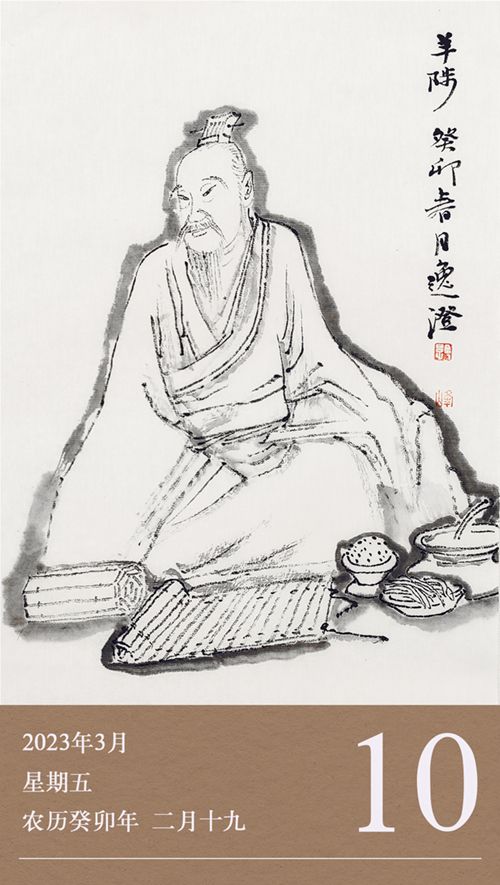 羊陟 癸卯春月逸澄
2023年3月
星期五
农历癸卯年 二月十九
10